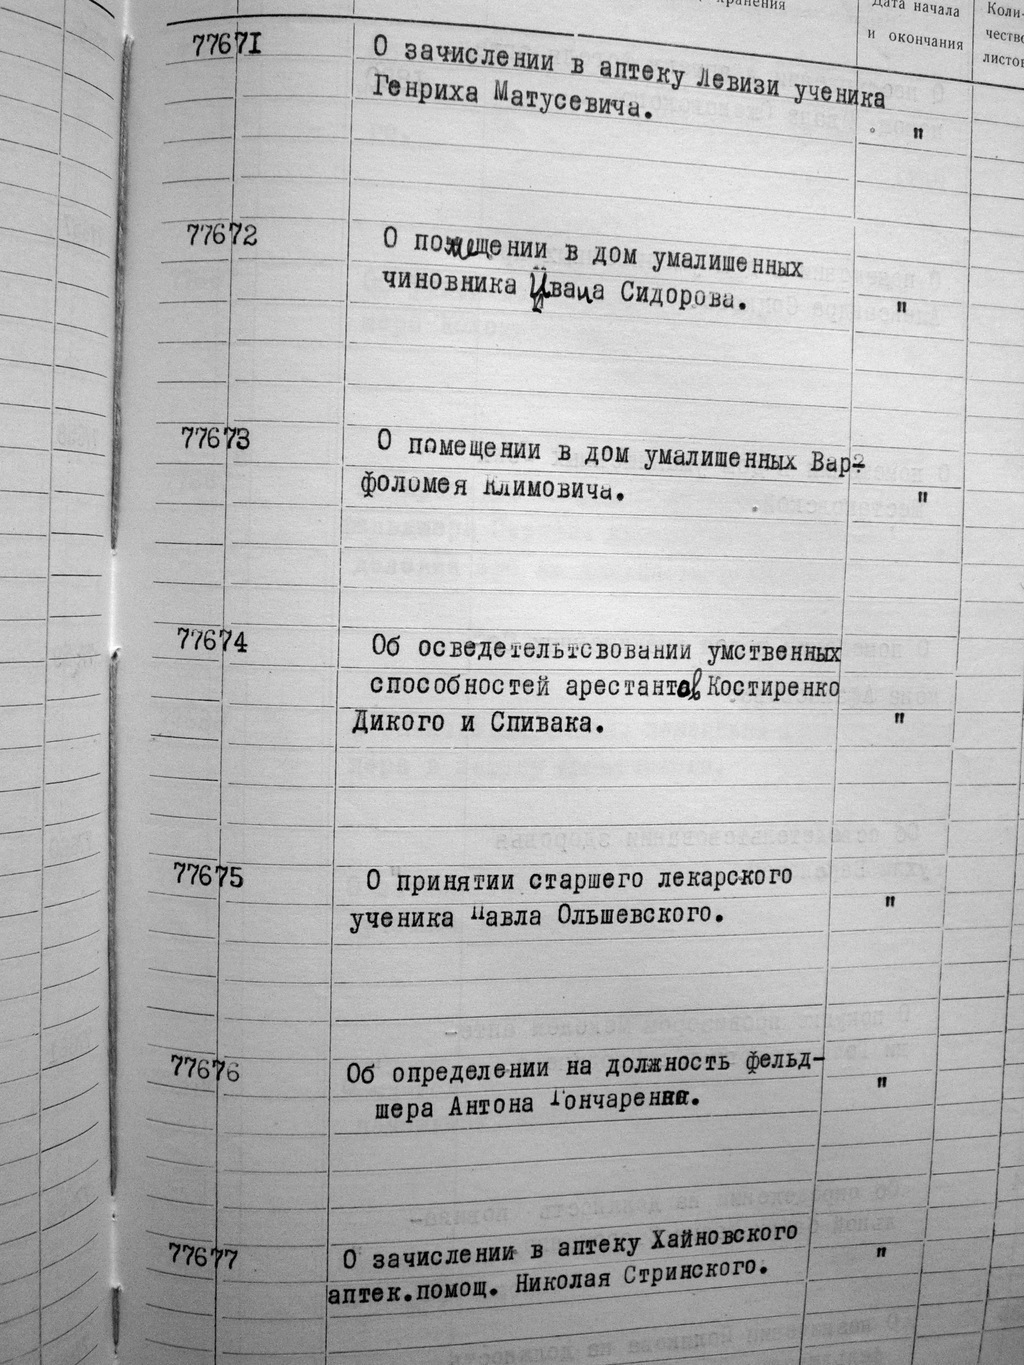 Дата начала
и окончания
листов
77671
О зачислении в аптеку Левизи ученика
Генриха Матусевича.
"
77672
О помещении в дом умалишенных
чиновника Ивана Сидорова.
"
77673
О помещении в дом умалишенных Вар-
фоломея Климовича.
"
77674
Об осведетельтсвовании умственных
способностей арестантов Костиренко
Дикого и Спивака.
"
77675
О принятии старшего лекарского
ученика Павла Ольшевского.
"
77676
Об определении на должность фельд-
шера Антона Гончаренка.
"
77677
О зачислении в аптеку Хайновского
аптек.помощ. Николая Стринского.
"